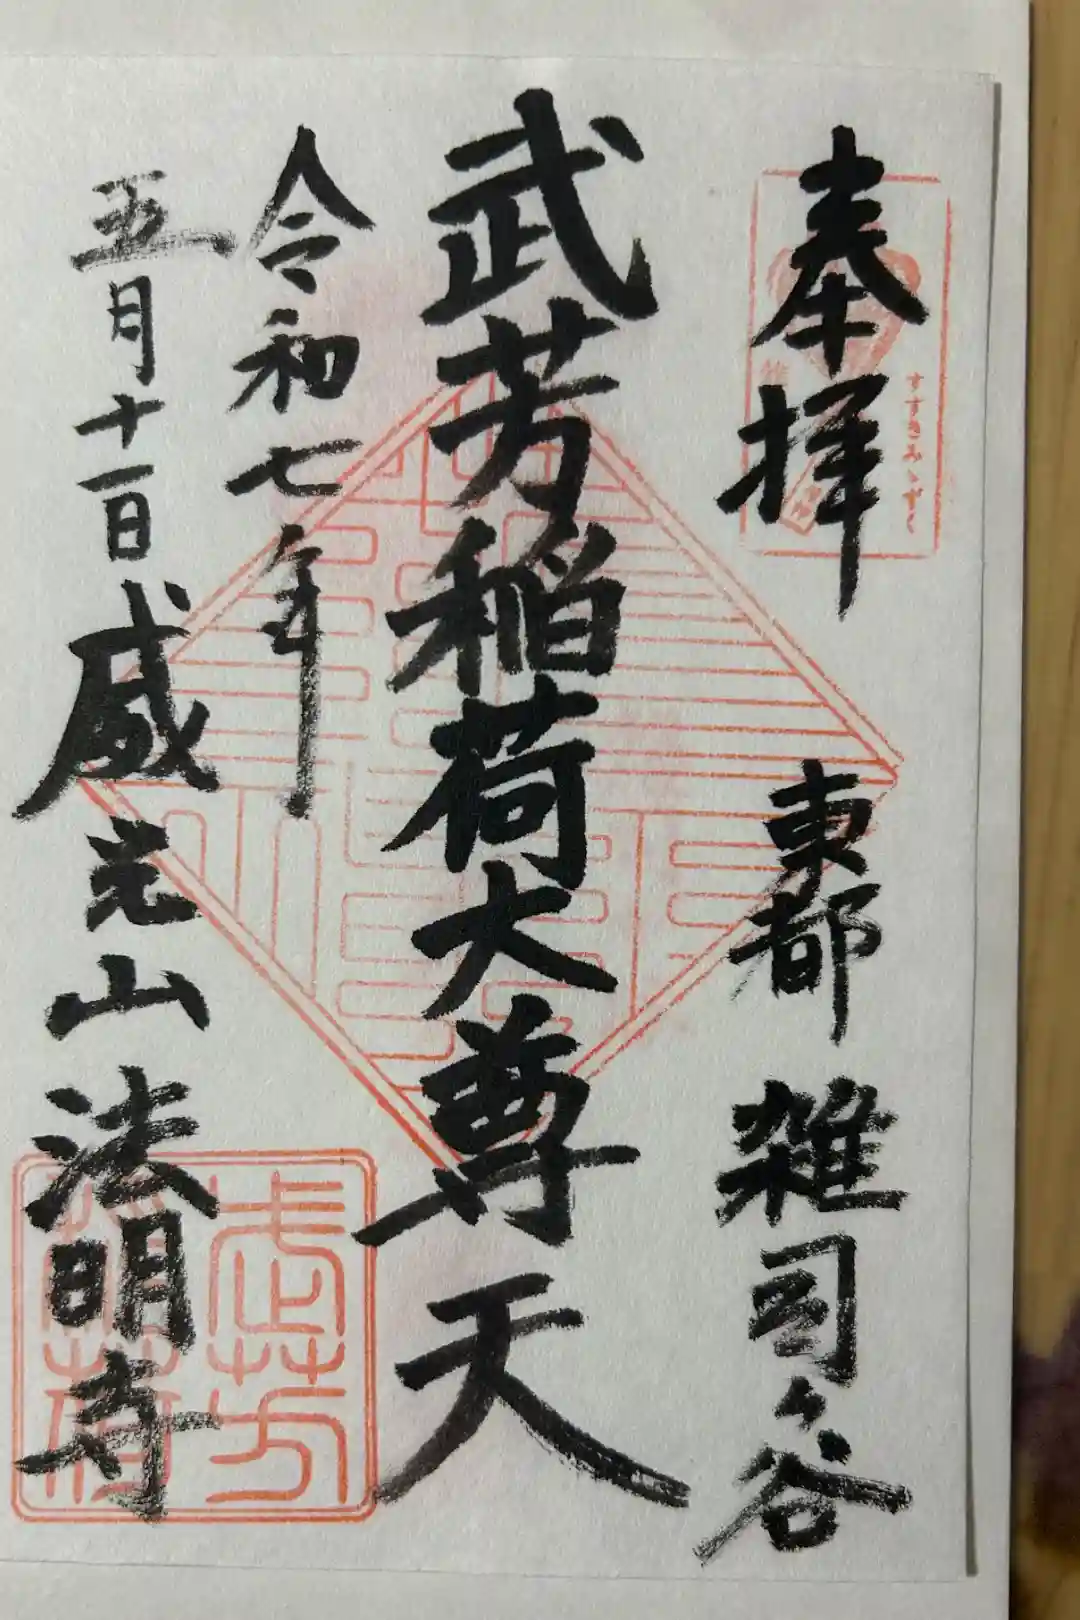 奉拝
東都 雑司ヶ谷
すすきみゝずく
武芳稲荷大尊天
令和七年
五月十一日
威光山法明寺
武芳
稲荷